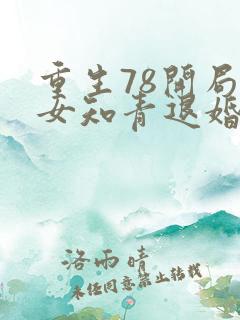 重生78开局
女知青退婚
洛雨晴
未经同意禁止转载